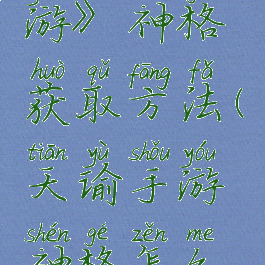 游》 神格
huò qǔ fāng fǎ
获取方法(
tiān yù shǒu yóu
天谕手游
shén gé zěn me
神格怎么